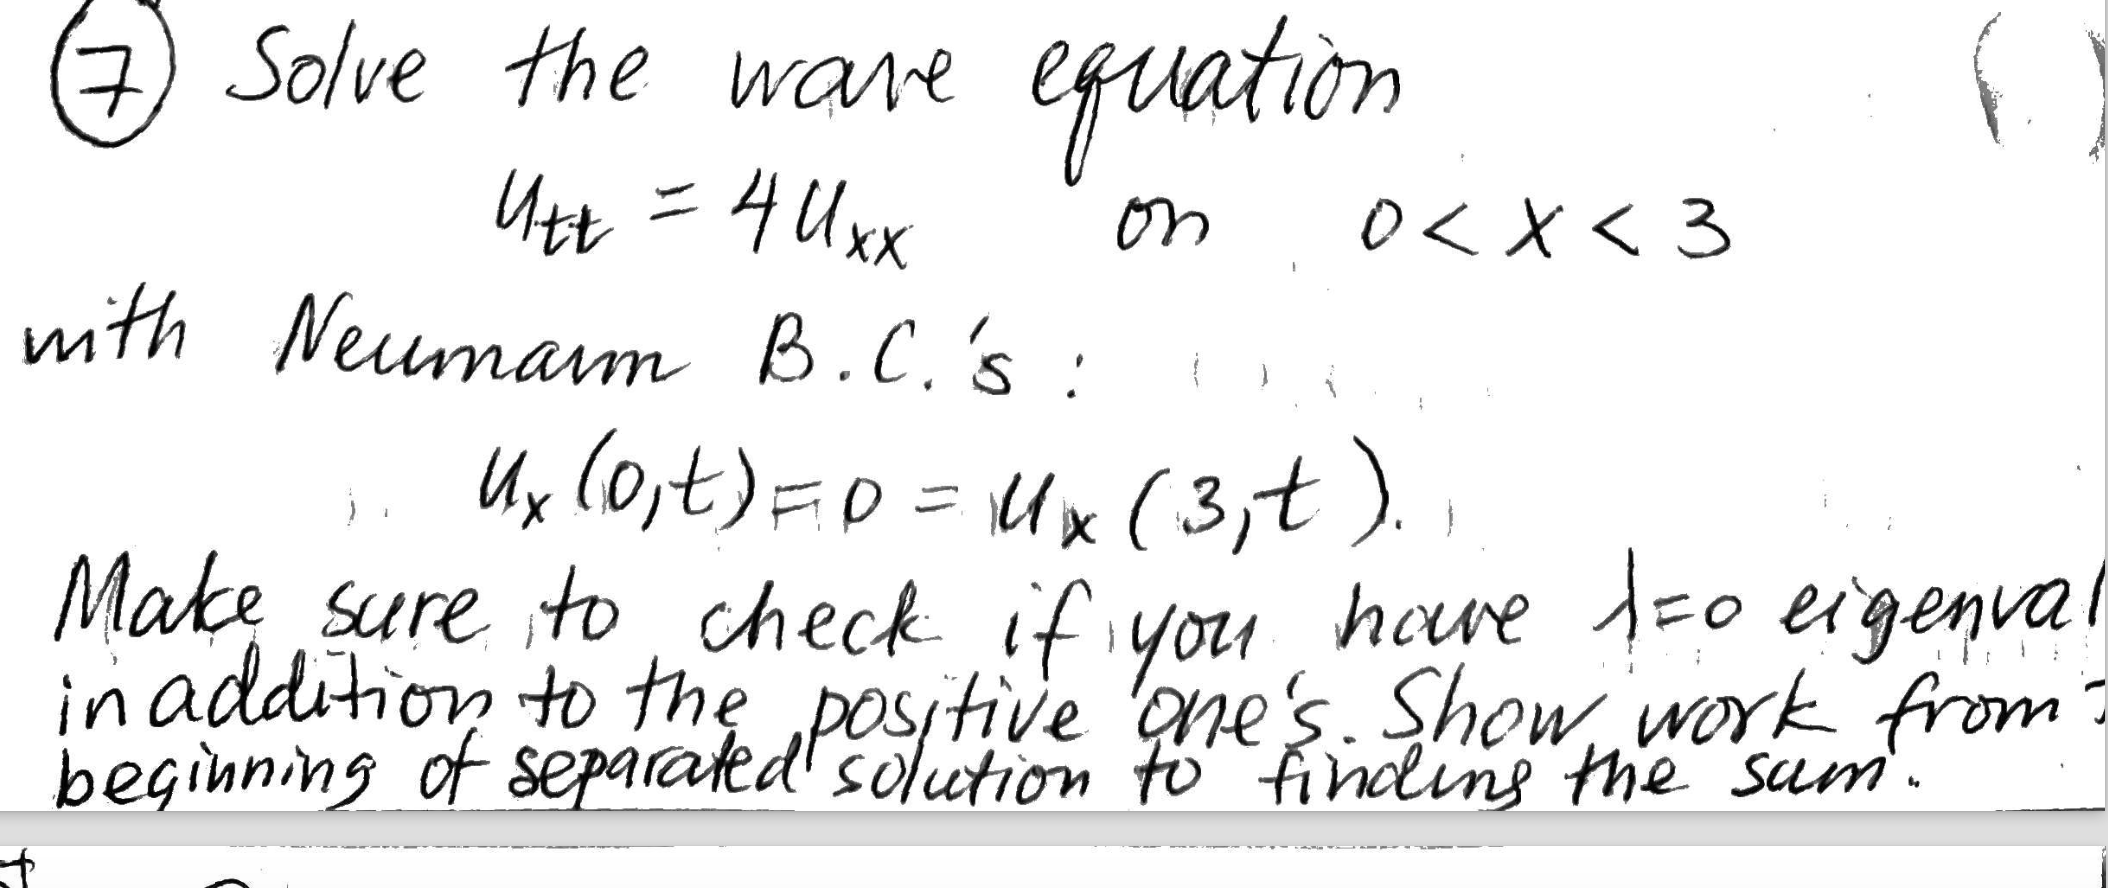 7 Solve the wave equation
u_tt = 4 u_xx on 0 < x < 3
with Neumann B.C.'s :
u_x (0,t) = 0 = u_x (3,t).
Make sure to check if you have λ=0 eigenval
in addition to the positive one's. Show work from
beginning of separated solution to finding the sum.